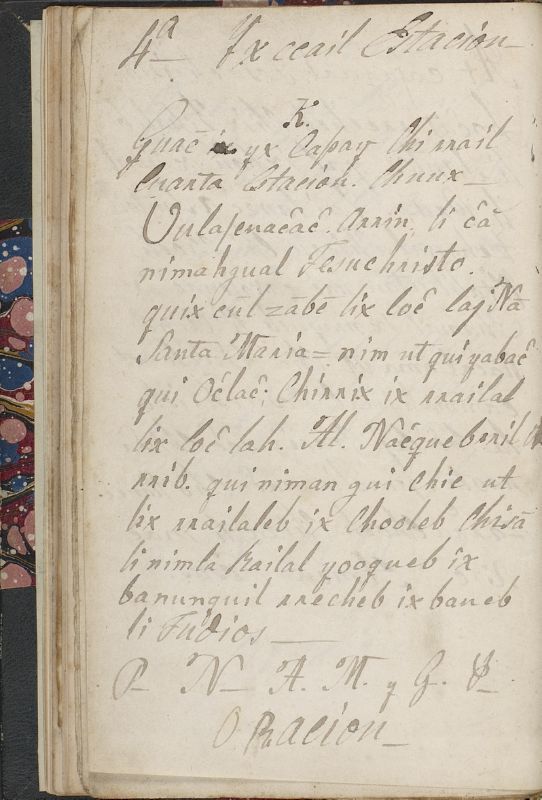 4ª Yx ccail Estación
K.
Guac̃ yx Capay Chi rrail
Cuarta Estación. Chuux
Unlajenac̃ac̃. Arrin, li c̃ã
nimahgual Jesuchristo.
quix cul=zabẽ lix loc̃ laj Nã
Santa Maria= nim ut qui yabac̃
qui Oc̃lac̃; Chirrix ix rrailal
lix loc̃ lah. Al. Nac̃queberil
rrib. qui niman gui Chic ut
lix rrailaleb ix Chooleb Chisã
li nimlã Railal yooqueb ix
banunquil rrecheb ix baneb
li Judios
P. N. A. M. y G. P.
ORacion